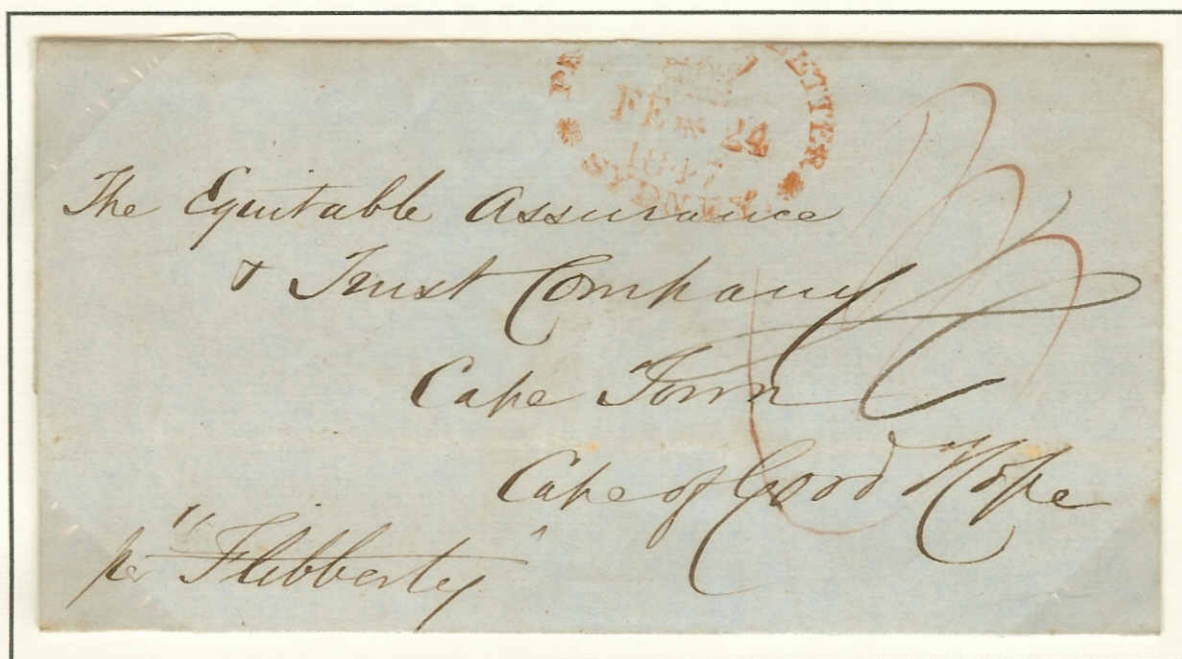 LETTER
FE 24
1847
SYDNEY
The Equitable Assurance
& Trust Company
Cape Town
Cape of Good Hope
per "Flibberty"